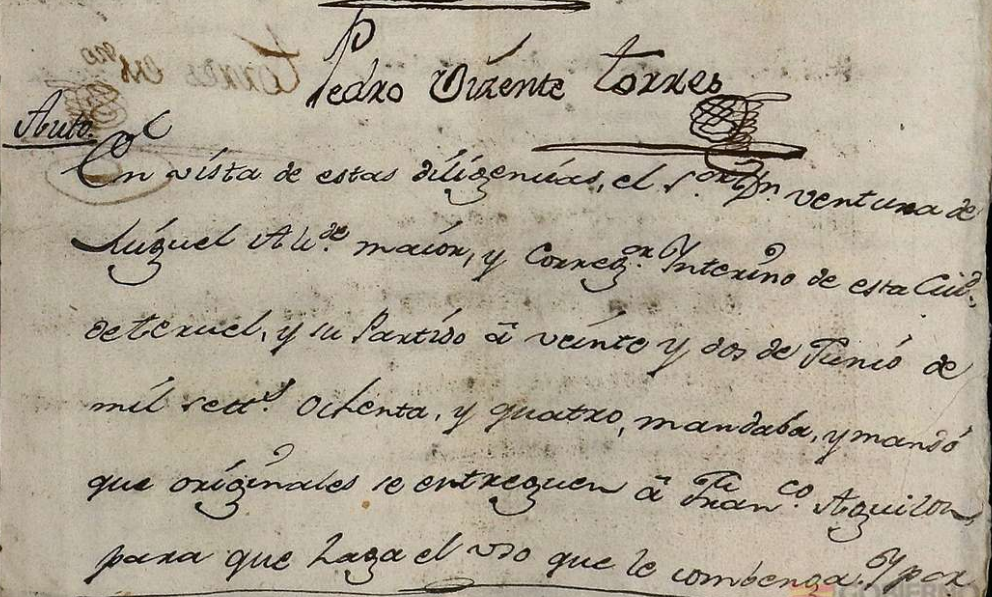 Pedro Vizente Torres
Auto.
En vista de estas diligenzias, el S.or D.n ventura de
Miguel Al.de maior, y Correg.or Ynterino de esta Ciud.
de teruel, y su Partido â veinte y dos de Junio de
mil sett.s ochenta, y quatro, mandaba, y mandó
que originales se entreguen â Fran.co Aguilon,
para que haga el uso que le combenga. Y por
GOBIERNO